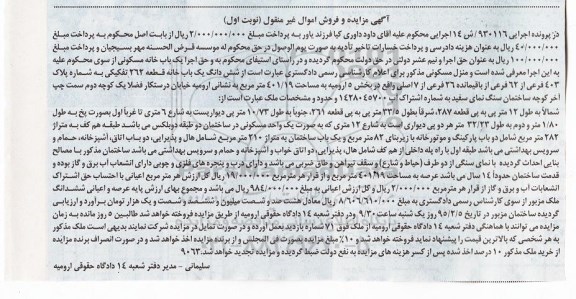 آگهی مزایده و فروش اموال غیر منقول (نوبت اول)
در پرونده اجرایی ۹۳۰۱۱۶/ ش ۱۴ اجرایی محکوم علیه آقای داود داوری کیا فرزند یاور به پرداخت مبلغ ۲/۰۰۰/۰۰۰/۰۰۰ ریال از بابت اصل محکوم به پرداخت مبلغ
۴۰/۰۰۰/۰۰۰ ریال به عنوان هزینه دادرسی و پرداخت خسارات تاخیر تادیه به صورت یوم الوصول در حق محکوم له موسسه قرض الحسنه مهر بسیجیان و پرداخت مبلغ
۱۰۰/۰۰۰/۰۰۰ ریال به عنوان حق اجرا و نیم عشر دولتی در حق دولت محکوم گردیده و در راستای استیفای محکوم به و حق اجرا یک باب خانه مسکونی از سوی محکوم علیه
به این اجرا معرفی شده است و منزل مسکونی مذکور برای اعلام کارشناس رسمی دادگستری عبارت است از شش دانگ یک باب خانه قطعه ۳۶۲ تفکیکی به شماره پلاک
۴۰۳ فرعی از ۶۲ فرعی از باقیمانده ۳۶ فرعی از ۷ اصلی واقع در بخش ۵ ارومیه به مساحت ۴۰۱/۱۹ متر مربع به نشانی ارومیه خیابان درستکار فضلا یک کوچه دوم سمت چپ
آخر کوچه ساختمان سنگ نمای سفید به شماره اشتراک ۱۴۲۸۰۴۵۷۰۰ و حدود و مشخصات ملک عبارت است از:
شمالا به طول ۱۲ متر به پی قطعه ۲۸۷، شرقاً بطول ۳۳/۸۰ متر به پی قطعه ۳۶۱، جنوباً به طول ۱۰/۷۳ متر پی دیواریست به شارع ۶ متری تا غرباً اول بصورت پخ به طول
۱/۸۰ متر و دوم به طول ۳۲/۳۳ متر هر دو پی دیواری است به شارع ۱۲ متری که به صورت یک واحد مسکونی در ساختمان دو طبقه دوبلکس می باشد. طبقه هم کف به متراژ
۲۸۲ متر مربع شامل دو باب پارکینگ و موتورخانه با زیربنای ۸۲ متر مربع و یک باب ساختمان به متراژ ۲۱۰ متر مربع شامل هال و پذیرایی، دو باب اتاق، آشپزخانه، حمام و
سرویس بهداشتی می باشد طبقه اول با راه پله داخلی از هم کف شامل هال، پذیرایی، دو اتاق خواب و آشپزخانه و حمام و سرویس بهداشتی می باشد ساختمان مذکور با مصالح
بنایی احداث گردیده با نمای سنگی از دو طرف (حیاط و شارع) و سقف تیرآهن و طاق ضربی می باشد و دارای درب و پنجره های فلزی و چوبی دارای انشعاب آب برق و گاز بوده و
قدمت ساختمان حدوداً ۱۴ سال می باشد عرصه به مساحت ۴۰۱/۱۹ متر مربع و از قرار هر متر مربع ۱۹/۰۰۰/۰۰۰ ریال کل ارزش هر متر مربع اعیانی با احتساب حق اشتراک
انشعابات آب و برق و گاز از قرار هر متر مربع ۲/۰۰۰/۰۰۰ ریال و کل ارزش اعیانی به مبلغ ۹۸۴/۰۰۰/۰۰۰ ریال می باشد و مجموع بهای ارزش پایه عرصه و اعیانی ششدانگ
ملک مزبور از سوی کارشناس رسمی دادگستری به مبلغ ۸/۶۰۶/۶۱۰/۰۰۰ ریال معادل هشت صد و شصت میلیون و ششصد و شصت و یک هزار تومان برآورد و ارزیابی
گردیده ساختمان مزبور در تاریخ ۹۵/۲/۵ روز یک شنبه ساعت ۹/۳۰ در دفتر شعبه ۱۴ دادگاه حقوقی ارومیه از طریق مزایده فروخته خواهد شد طالبین ۵ روز مانده به زمان
مزایده می توانند با هماهنگی دفتر شعبه ۱۴ دادگاه حقوقی ارومیه از ملک فوق ۷۱ شماره بازدید بعمل آورده و در صورت تمایل در مزایده شرکت نمایند بدیهی است ملک مذکور
به هر شخصی که بالاترین قیمت را پیشنهاد نماید فروخته خواهد شد. ۱۰٪ مبلغ مزایده بصورت فی المجلس و از برنده مزایده اخذ خواهد شد و در صورت انصراف برنده مزایده
از خرید ملک مذکور ۱۰ درصد اخذ شده پس از کسر هزینه های مزایده به نفع دولت ضبط گردیده و مزایده تجدید خواهد شد. ۹۰۶۳
سلیمانی - مدیر دفتر شعبه ۱۴ دادگاه حقوقی ارومیه